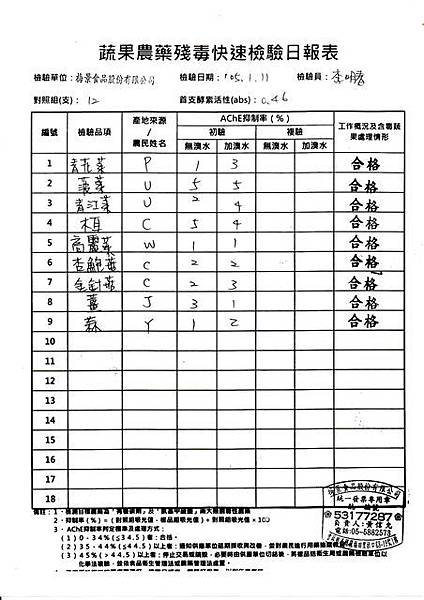 蔬果農藥殘毒快速檢驗日報表
檢驗單位：梅景食品股份有限公司 檢驗日期：'05.1.11 檢驗員：李明
對照組(支)：12 首支酵素活性(abs)：0.46
編號 檢驗項目 產地來源/農民姓名 AChE抑制率(%) 工作概況及含毒蔬果處理情形
初驗 複驗
無溴水 加溴水 無溴水 加溴水
1 青花菜 P 1 3 合格
2 菠菜 U 5 5 合格
3 青江菜 U 2 4 合格
4 木耳 C 5 4 合格
5 高麗菜 W 1 1 合格
6 杏鮑菇 C 2 2 合格
7 金針菇 C 2 3 合格
8 薑 J 3 1 合格
9 蒜 Y 1 2 合格
10
11
12
13
14
15
16
17
18
2．抑制率(％)＝(對照組吸光值－樣品組吸光值)÷對照組吸光值×100
3．AChE抑制率判定標準及處理方式：
(1) 0-34%(≤34.5)者：合格。
(2) 35-44%(≤44.5)以上者：
(3) 45%(>44.5)以上者：
景食品股份有限公司
統一發票專用章
統一編號
53177287
負責人：黃
電話:05-5882573